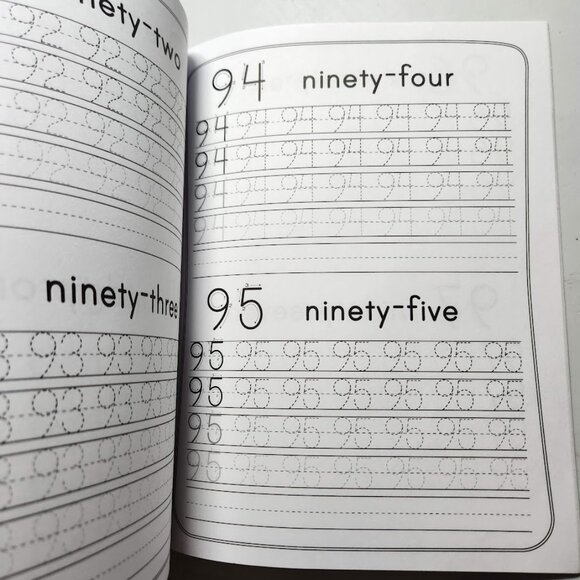 nety-two
92 92 92 92
92 92 92 92
92 92 92 92
92 92 92 92
ninety-three
3 93 93 93 93
3 93 93 93 93
3 93 93 93 93
3 93 93 93 93
94 ninety-four
94 94 94 94 94 94 94
94 94 94 94 94 94 94
94 94 94 94 94 94 94
94 94 94 94 94 94 94
95 ninety-five
95 95 95 95 95 95 95
95 95 95 95 95 95 95
95 95 95 95 95 95 95
95 95 95 95 95 95 95